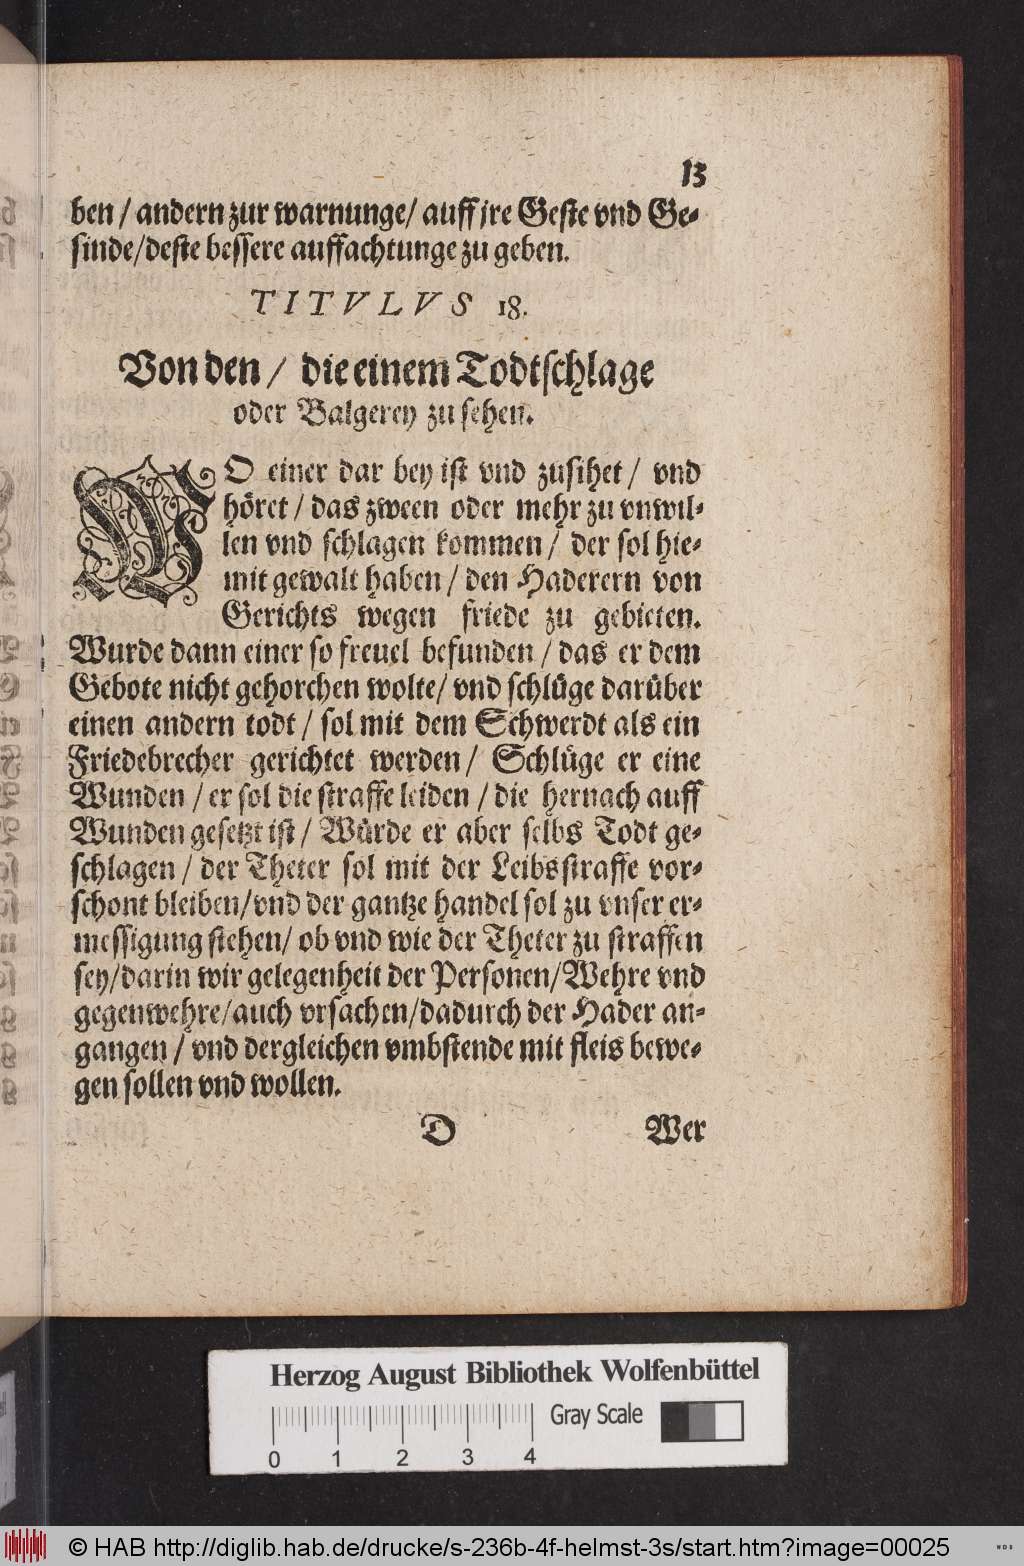 13
ben / andern zur warnunge / auff jre Geste vnd Ge-
sinde / deste bessere auffachtunge zu geben.
TITVLVS 18.
Von den / die einem Todtschlage
oder Balgerey zu sehen.
WO einer dar bey ist vnd zusihet / vnd
höret / das zween oder mehr zu vnwil-
len vnd schlagen kommen / der sol hie-
mit gewalt haben / den Haderern von
Gerichts wegen friede zu gebieten.
Wurde dann einer so freuel befunden / das er dem
Gebote nicht gehorchen wolte / vnd schlüge darüber
einen andern todt / sol mit dem Schwerdt als ein
Friedebrecher gerichtet werden / Schlüge er eine
Wunden / er sol die straffe leiden / die hernach auff
Wunden gesetzt ist / Würde er aber selbs Todt ge-
schlagen / der Theter sol mit der Leibsstraffe vor-
schont bleiben / vnd der gantze handel sol zu vnser er-
messigung stehen / ob vnd wie der Theter zu straffen
sey / darin wir gelegenheit der Personen / Wehre vnd
gegenwehre / auch vrsachen / dadurch der Hader an-
gangen / vnd dergleichen vmbstende mit fleis bewe-
gen sollen vnd wollen.
D Wer
Herzog August Bibliothek Wolfenbüttel
Gray Scale
0 1 2 3 4
© HAB http://diglib.hab.de/drucke/s-236b-4f-helmst-3s/start.htm?image=00025